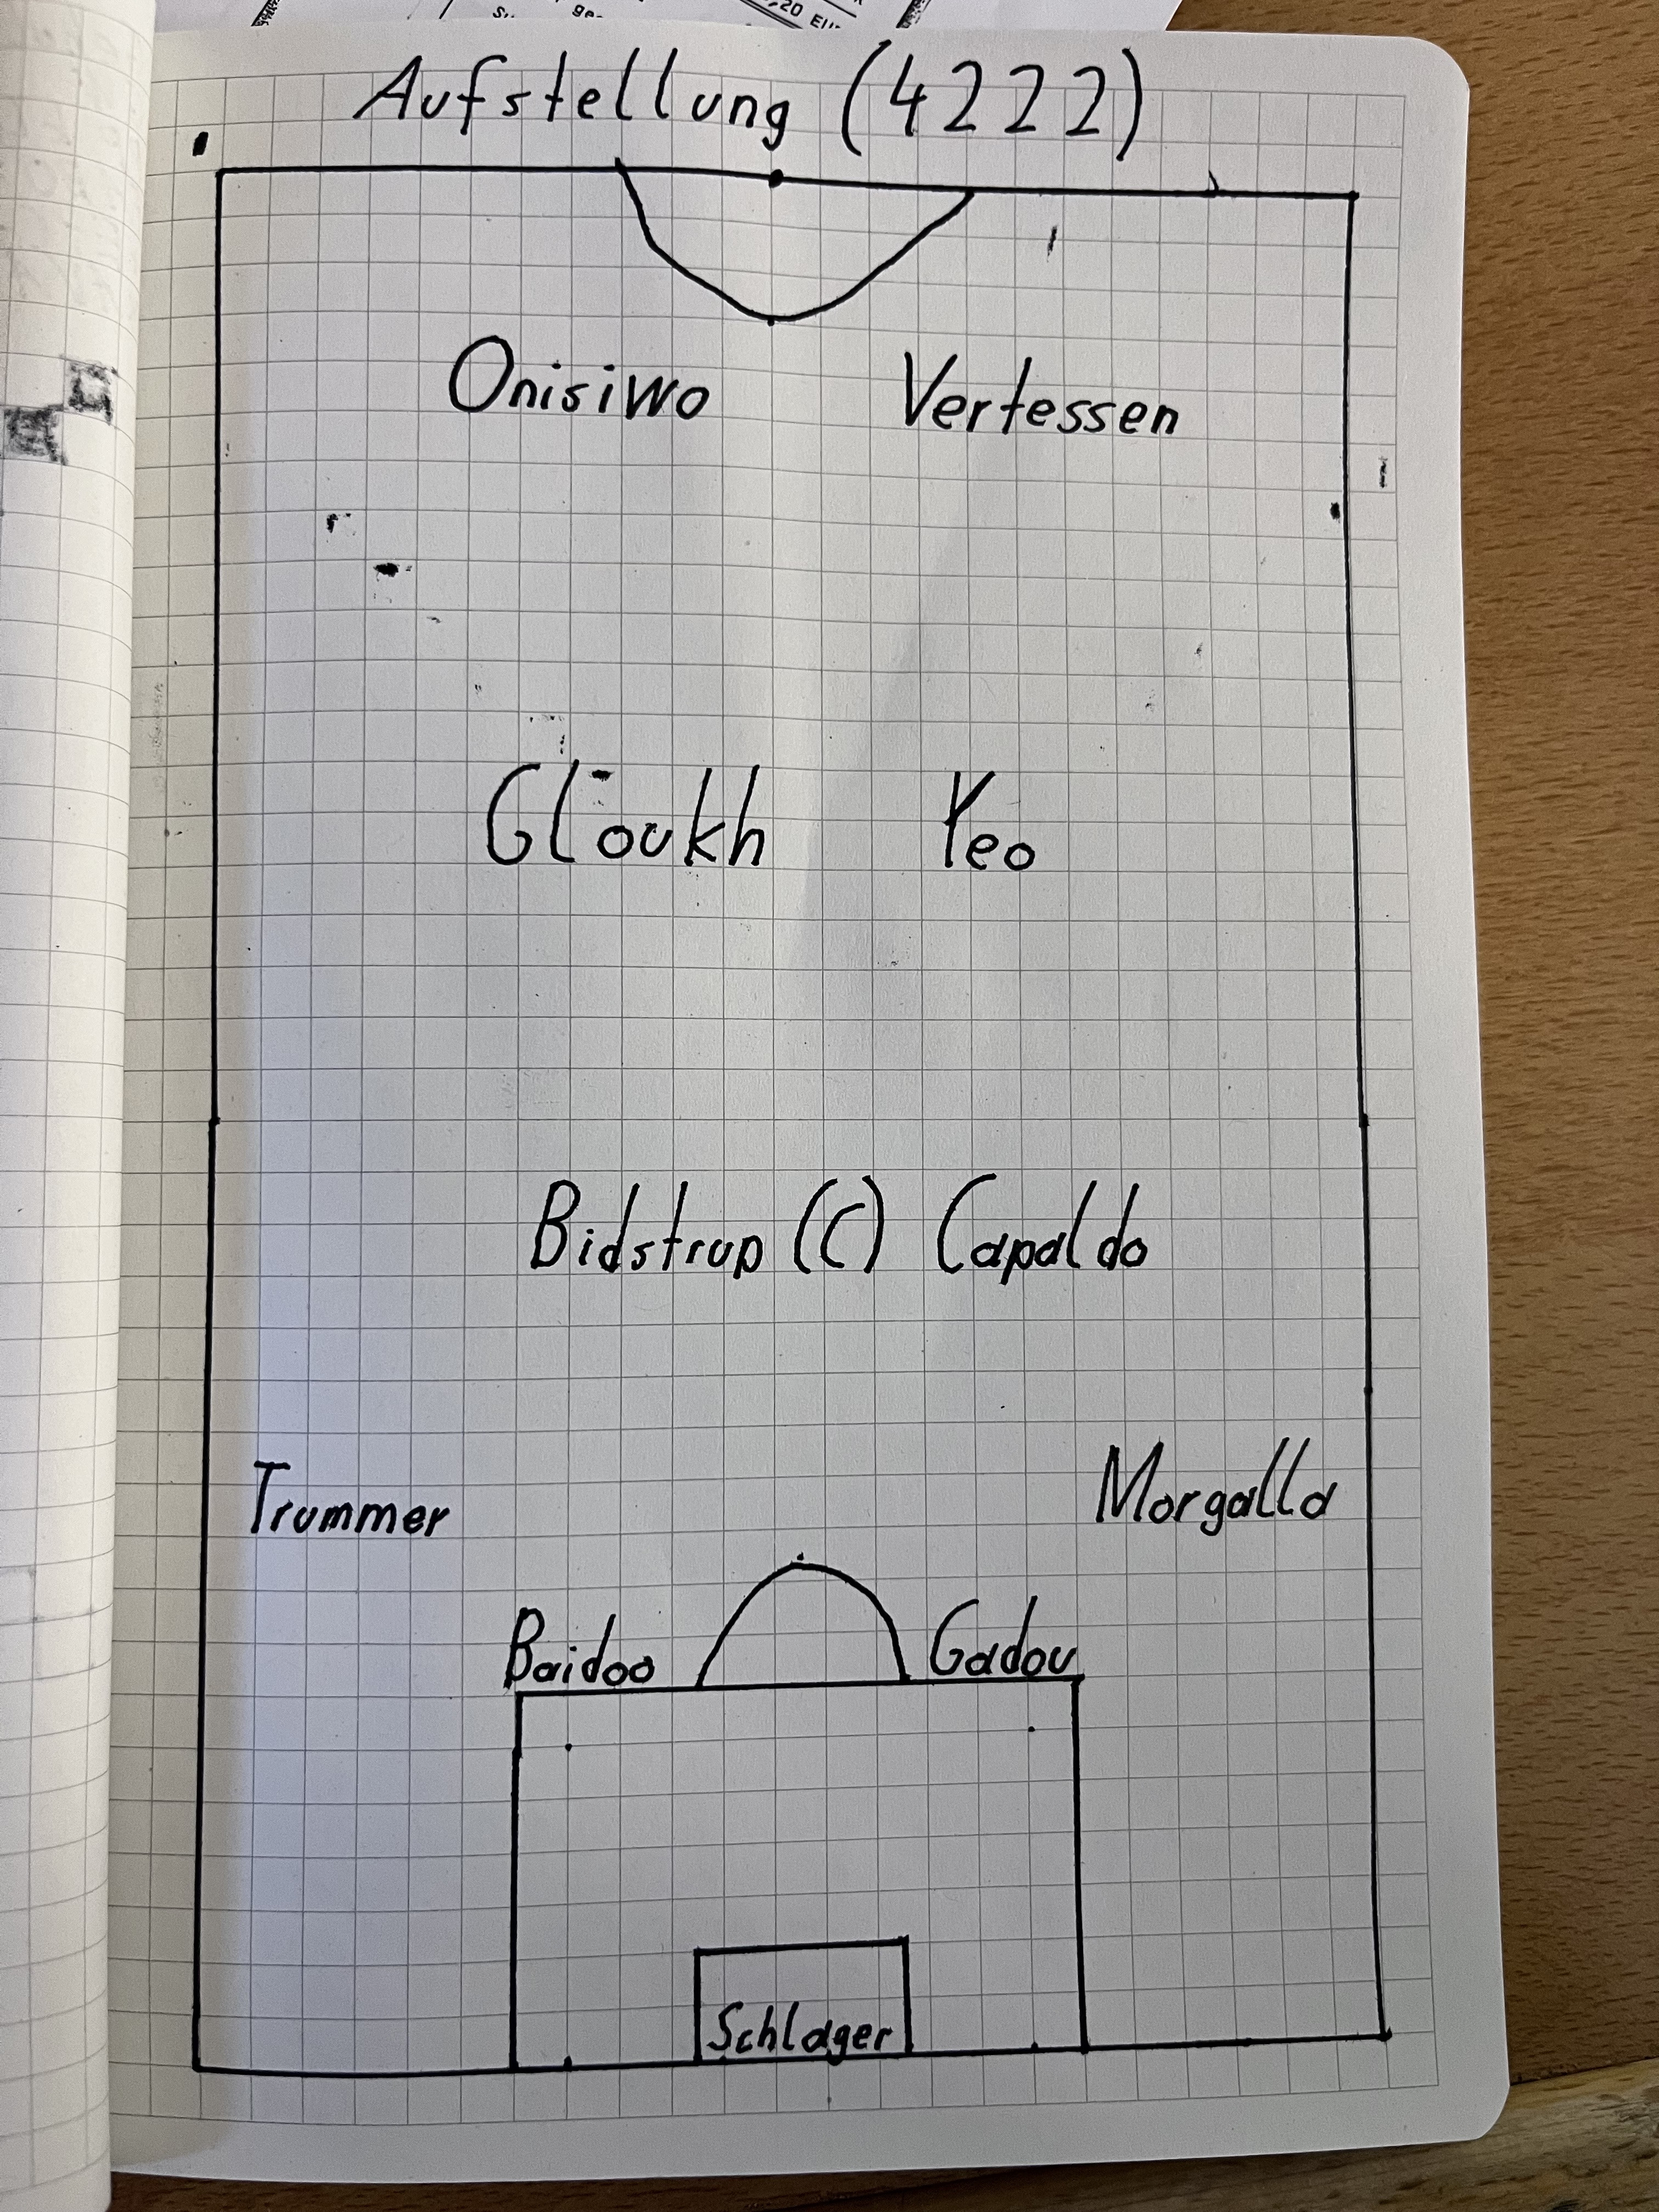 20 EU
ge
Aufstellung (4222)
Onisiwo Vertessen
Gloukh Yeo
Bidstrup (C) Capaldo
Trummer Morgalla
Baidoo Gadou
Schlager